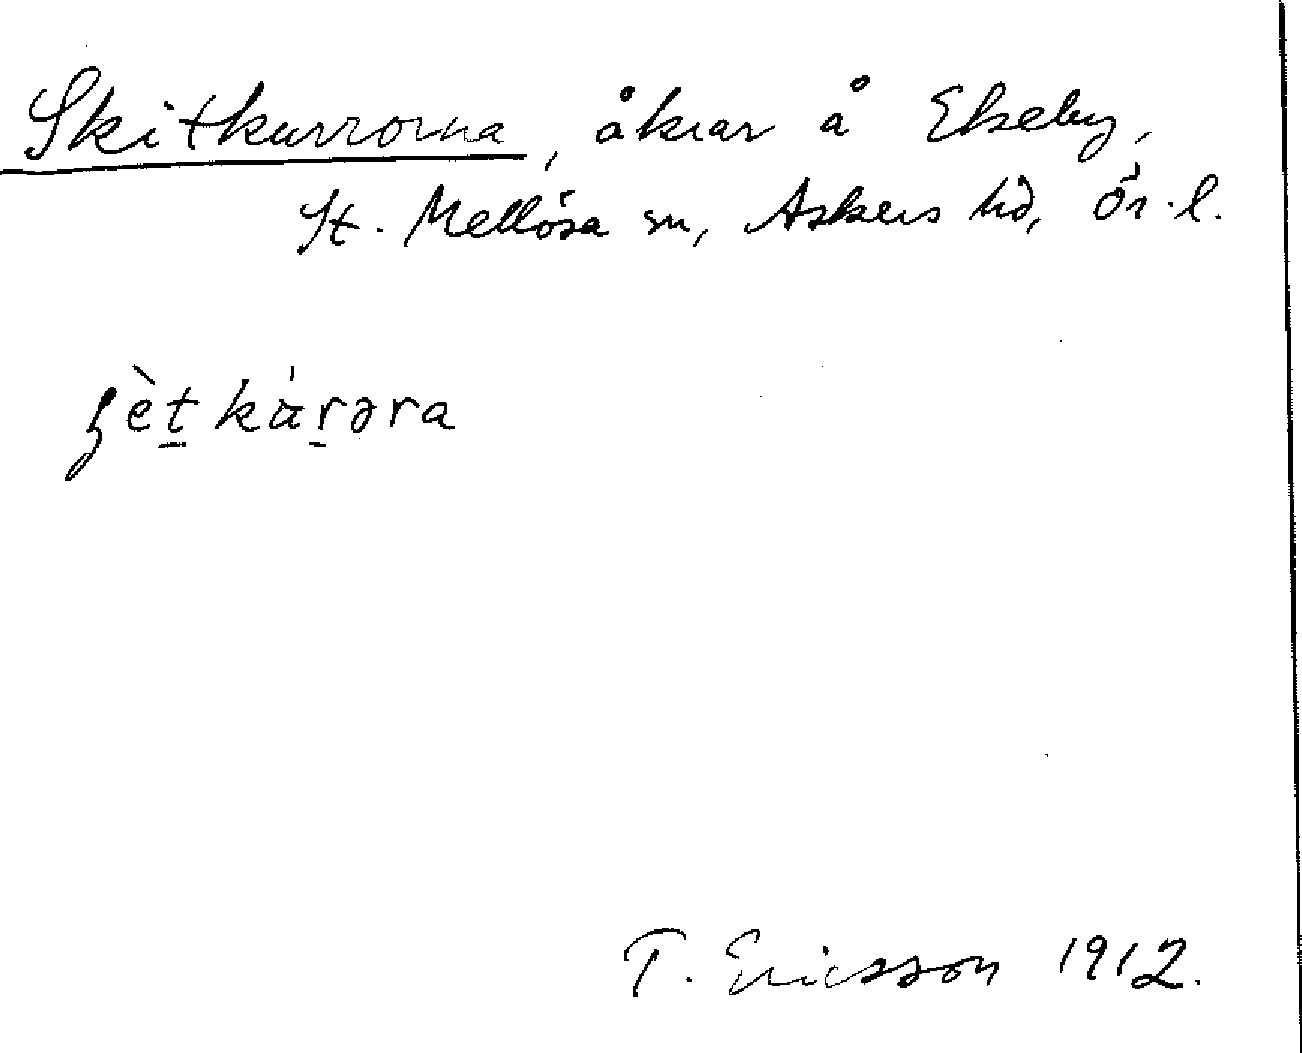 Skitkurrorna, åkrar å Ekeby,
St. Mellösa sn, Askers hd, Ör. l.
ʂèt̠ kàr̠ərа
T. Ericsson 1912.